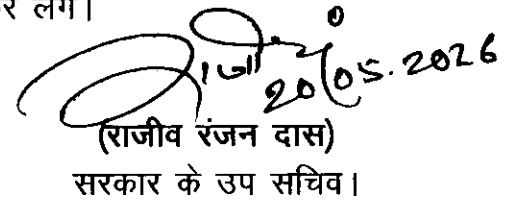 र लेंगे।
20/05.2026
(राजीव रंजन दास)
सरकार के उप सचिव।